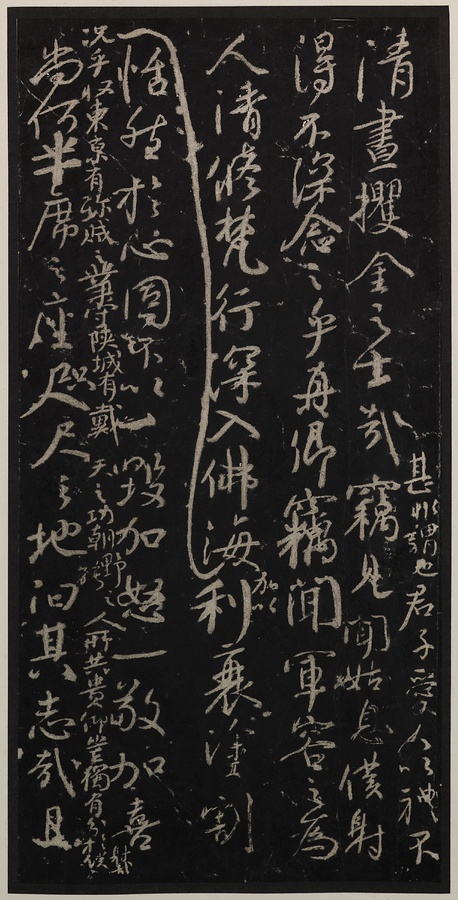 甚非謂也君子愛人以禮不
清晝攫金之士哉竊見聞姑息僕射
得不深念之乎真卿竊聞軍容之為
人清修梵行深入佛海加以利衰塗割
恬然於心固不以一毀加怒一敬加喜
況乎收東京有殄賊之業守陝城有戴天之功朝野之人所共貴仰豈獨有分於僕射哉
尚何半席之座咫尺之地能汩其志哉且